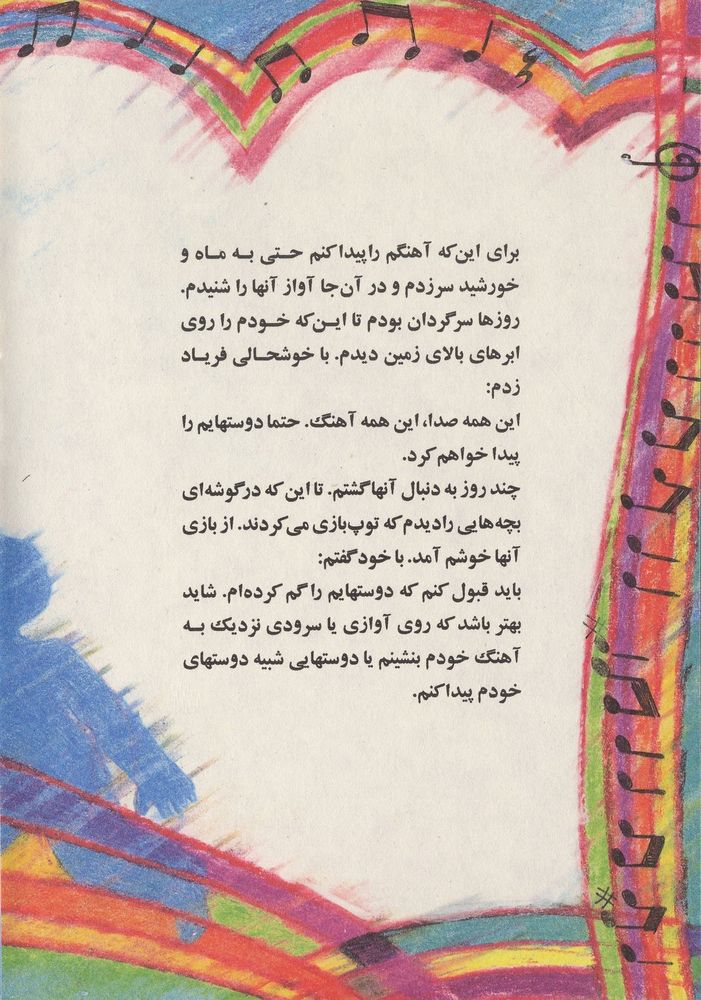 برای این‌که آهنگم را پیدا کنم حتی به ماه و
خورشید سرزدم و در آن‌جا آواز آنها را شنیدم.
روزها سرگردان بودم تا این‌که خودم را روی
ابرهای بالای زمین دیدم. با خوشحالی فریاد
زدم:
این همه صدا، این همه آهنگ. حتما دوستهایم را
پیدا خواهم کرد.
چند روز به دنبال آنها گشتم. تا این که در گوشه‌ای
بچه‌هایی را دیدم که توپ‌بازی می‌کردند. از بازی
آنها خوشم آمد. با خود گفتم:
باید قبول کنم که دوستهایم را گم کرده‌ام. شاید
بهتر باشد که روی آوازی یا سرودی نزدیک به
آهنگ خودم بنشینم یا دوستهایی شبیه دوستهای
خودم پیدا کنم.